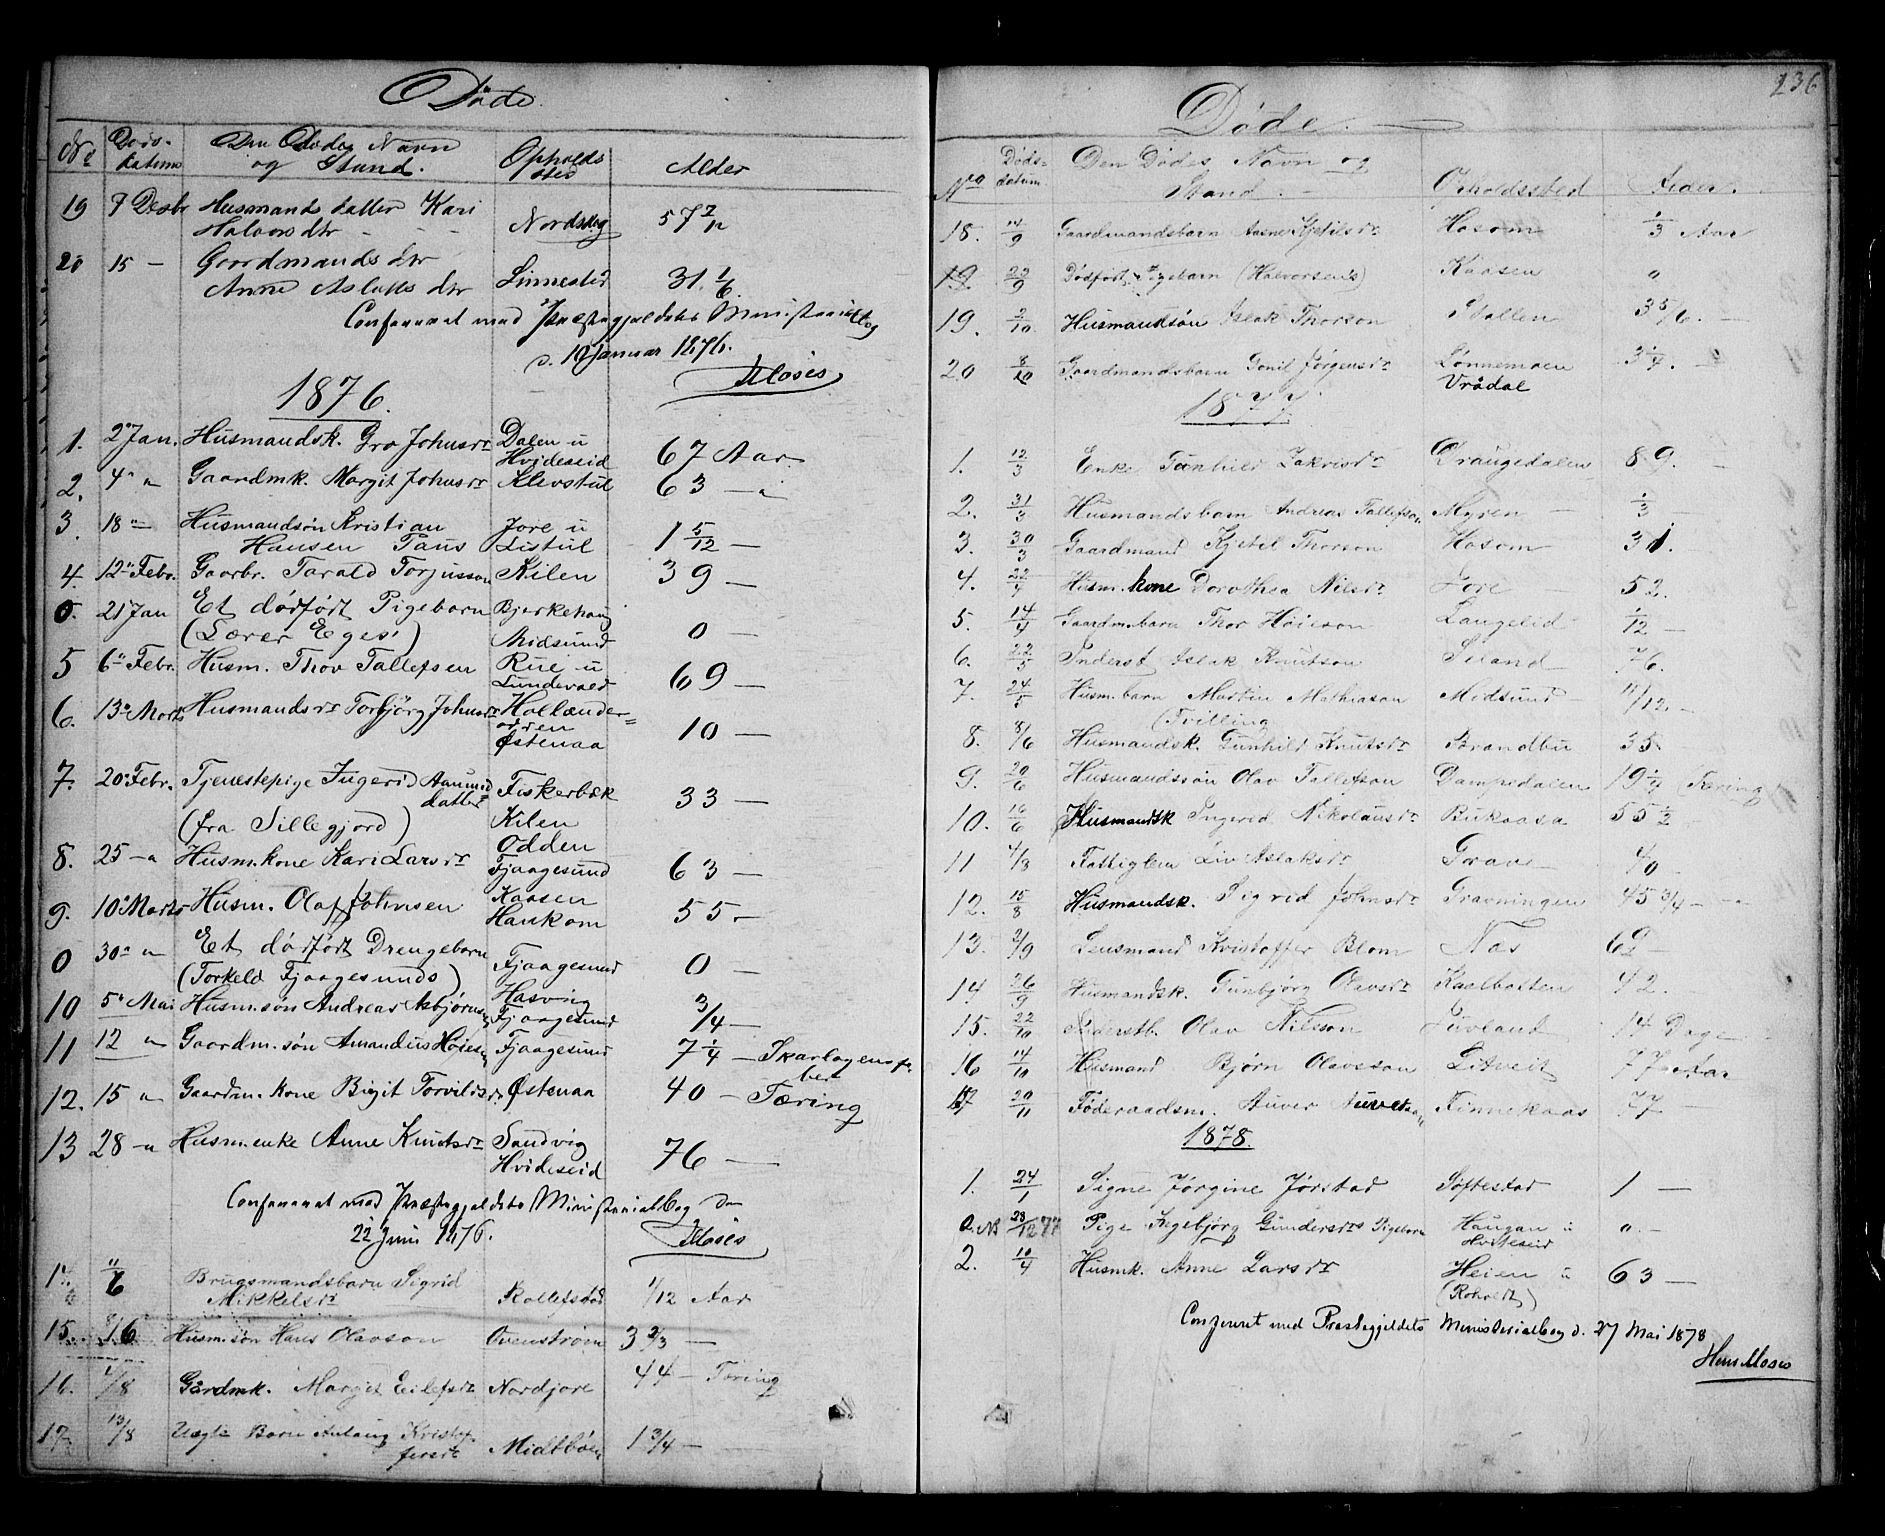 Døde.
No Døds-datum Den Dødes Navn og Stand. Opholdssted Alder
19 9 Desbr Husmandsdatter Kari
Halvorsdtr - Nordskog 57 7/12
20 15 — Gaardmandsdtr
Anne Aslaksdtr Linnestad 31 1/6
Confereret med Præstegjeldets Ministerialbog
d. 19 Januar 1876.
Moses
1876.
1. 2 Jan. Husmandsk. Gro Johnsdr Dalen u Hvideseid 67 Aar
2. 4 " Gaardmk. Margit Johnsdr Klevstul 63 — "
3. 18 " Husmandsøn Kristian
Hansen Taus Jore u Listul 1 5/12 —
4. 12 Febr. Gaardbr. Tarald Torjusson Kilen 39 —
0. 21 Jan Et dødfødt Pigebarn Bjerkehaug
(Lærer Eges') Midsund 0 —
5 6 Febr. Husm. Thov Tallefsen Rue u Lundevald 69 —
6. 13 Marts Husmandsdr Torbjörg Johnsdr Hollænder=
odden
Østenaa 10 —
7. 20 Febr. Tjenestepige Ingerid Aanund
datter Fiskerbæk 33 —
(fra Sillegjord) Kilen
8. 25 — " Husm.kone Kari Larsdr Odden
Fjaagesund 63 —
9. 10 Marts Husm. Olaf Johnsen Kaasen
Haukom 55 -
0 30 " Et dödfödt Drengebarn
(Torkeld Fjaagesunds) Fjaagesund 0 —
10 5 Mai Husm.søn Andreas Asbjörns Hasving
Fjaagesund 3/4 —
11 12 " Gaardm.søn Amandus Høies Fjaagesund 7 1/4 — Skarlagensfe
ber
12. 15 " Gaardm. kone Birgit Torvildsdr Østenaa 40 — Tæring
13 28 — " Husm.enke Anne Knutsdr Sandvig
Hvideseid 76 —
Confereret med Præstegjeldets Ministerialbog den
22 Juni 1876.
Moses
14. 11/6 Brugsmandsbarn Sigrid
Mikkelsdr Kollefstad 1/12 Aar
15. 8/6 Husm.søn Hans Olavson Ovenstrøm 3 2/3 —
16. 4/8 Gårdmk. Margit Eilefsdr Nordjore 44 — Tæring
17. 13/8 Uægte Barn Anlaug Kristof
fersdr Midtbøen 1 3/4 —
236
Døde.
No Døds-datum Den Dødes Navn og Stand. Opholdssted Alder.
18. 14/9 Gaardmandsbarn Aasne Kjetilsdr Hosom 1/3 Aar
19. 22/9 Dødfødt Pigebarn (Halvorsens) Kaasen "
19. 2/10 Husmandsøn Aslak Thorson Stallen 3 5/6. —
20 8/10 Gaardmandsbarn Gonil Jørgensdr Lønnemoen
Vrådal 3 1/4. —
1877.
1. 12/3 Enke Gunhild Zakrisdr Draugedalen 89. —
2. 31/3 Husmandsbarn Andreas Tallefson Myren — 1/3 —
3. 30/3 Gaardmand Kjetel Thorson Hosom 31. —
4. 22/4 Husm.kone Dorothea Nilsdr Jore — 52.
5. 14/4 Gaardm.barn Thor Høieson Langelid 1/12 —
6. 22/5 Inderst Aslak Knutson Siland — 76.
7. 24/5 Husm.barn Martin Mathiason Midsund — 11/12. —
(Tvilling
8. 8/6 Husmandsk. Gunhild Knutsdr Brandbu 35
9. 20/6 Husmandssøn Olav Tallefson Dampedalen 19 1/4 (Tæring)
10. 16/6 Husmandsk Ingerid Nikolausdr Bukaasa 55 1/2 —
11 4/8 Fattiglem Liv Aslaksdr Grave 40 —
12. 15/8 Husmandsk. Sigrid Johnsdr Gravningen 45 3/4 — "
13. 2/9 Lensmand Kristoffer Blom Nas 69 —
14 26/9 Husmandsk. Gunbjørg Olavsdr Kaalbotten 42.
15. 22/10 Inderstb. Olav Nilsson Juvland 14 Dage
16 14/10 Husmand Bjørn Olavsson Litveit 77 Aar
17 20/11 Føderaadsm. Auver Auverson Finnekaas 77 —
1878.
1. 24/1 Signe Jørgine Jørstad Søftestad 1 —
0. NB 28/12 77 Pige Ingebjørg Gundersdrs Pigebarn Haugan u
Hviteseid 0. —
2. 10/4 Husmk. Anne Larsdr Heien u 63 —
(Roholdt)
Conferert med Præstegjeldets Ministerialbog d. 27 Mai 1878
Hans Moses